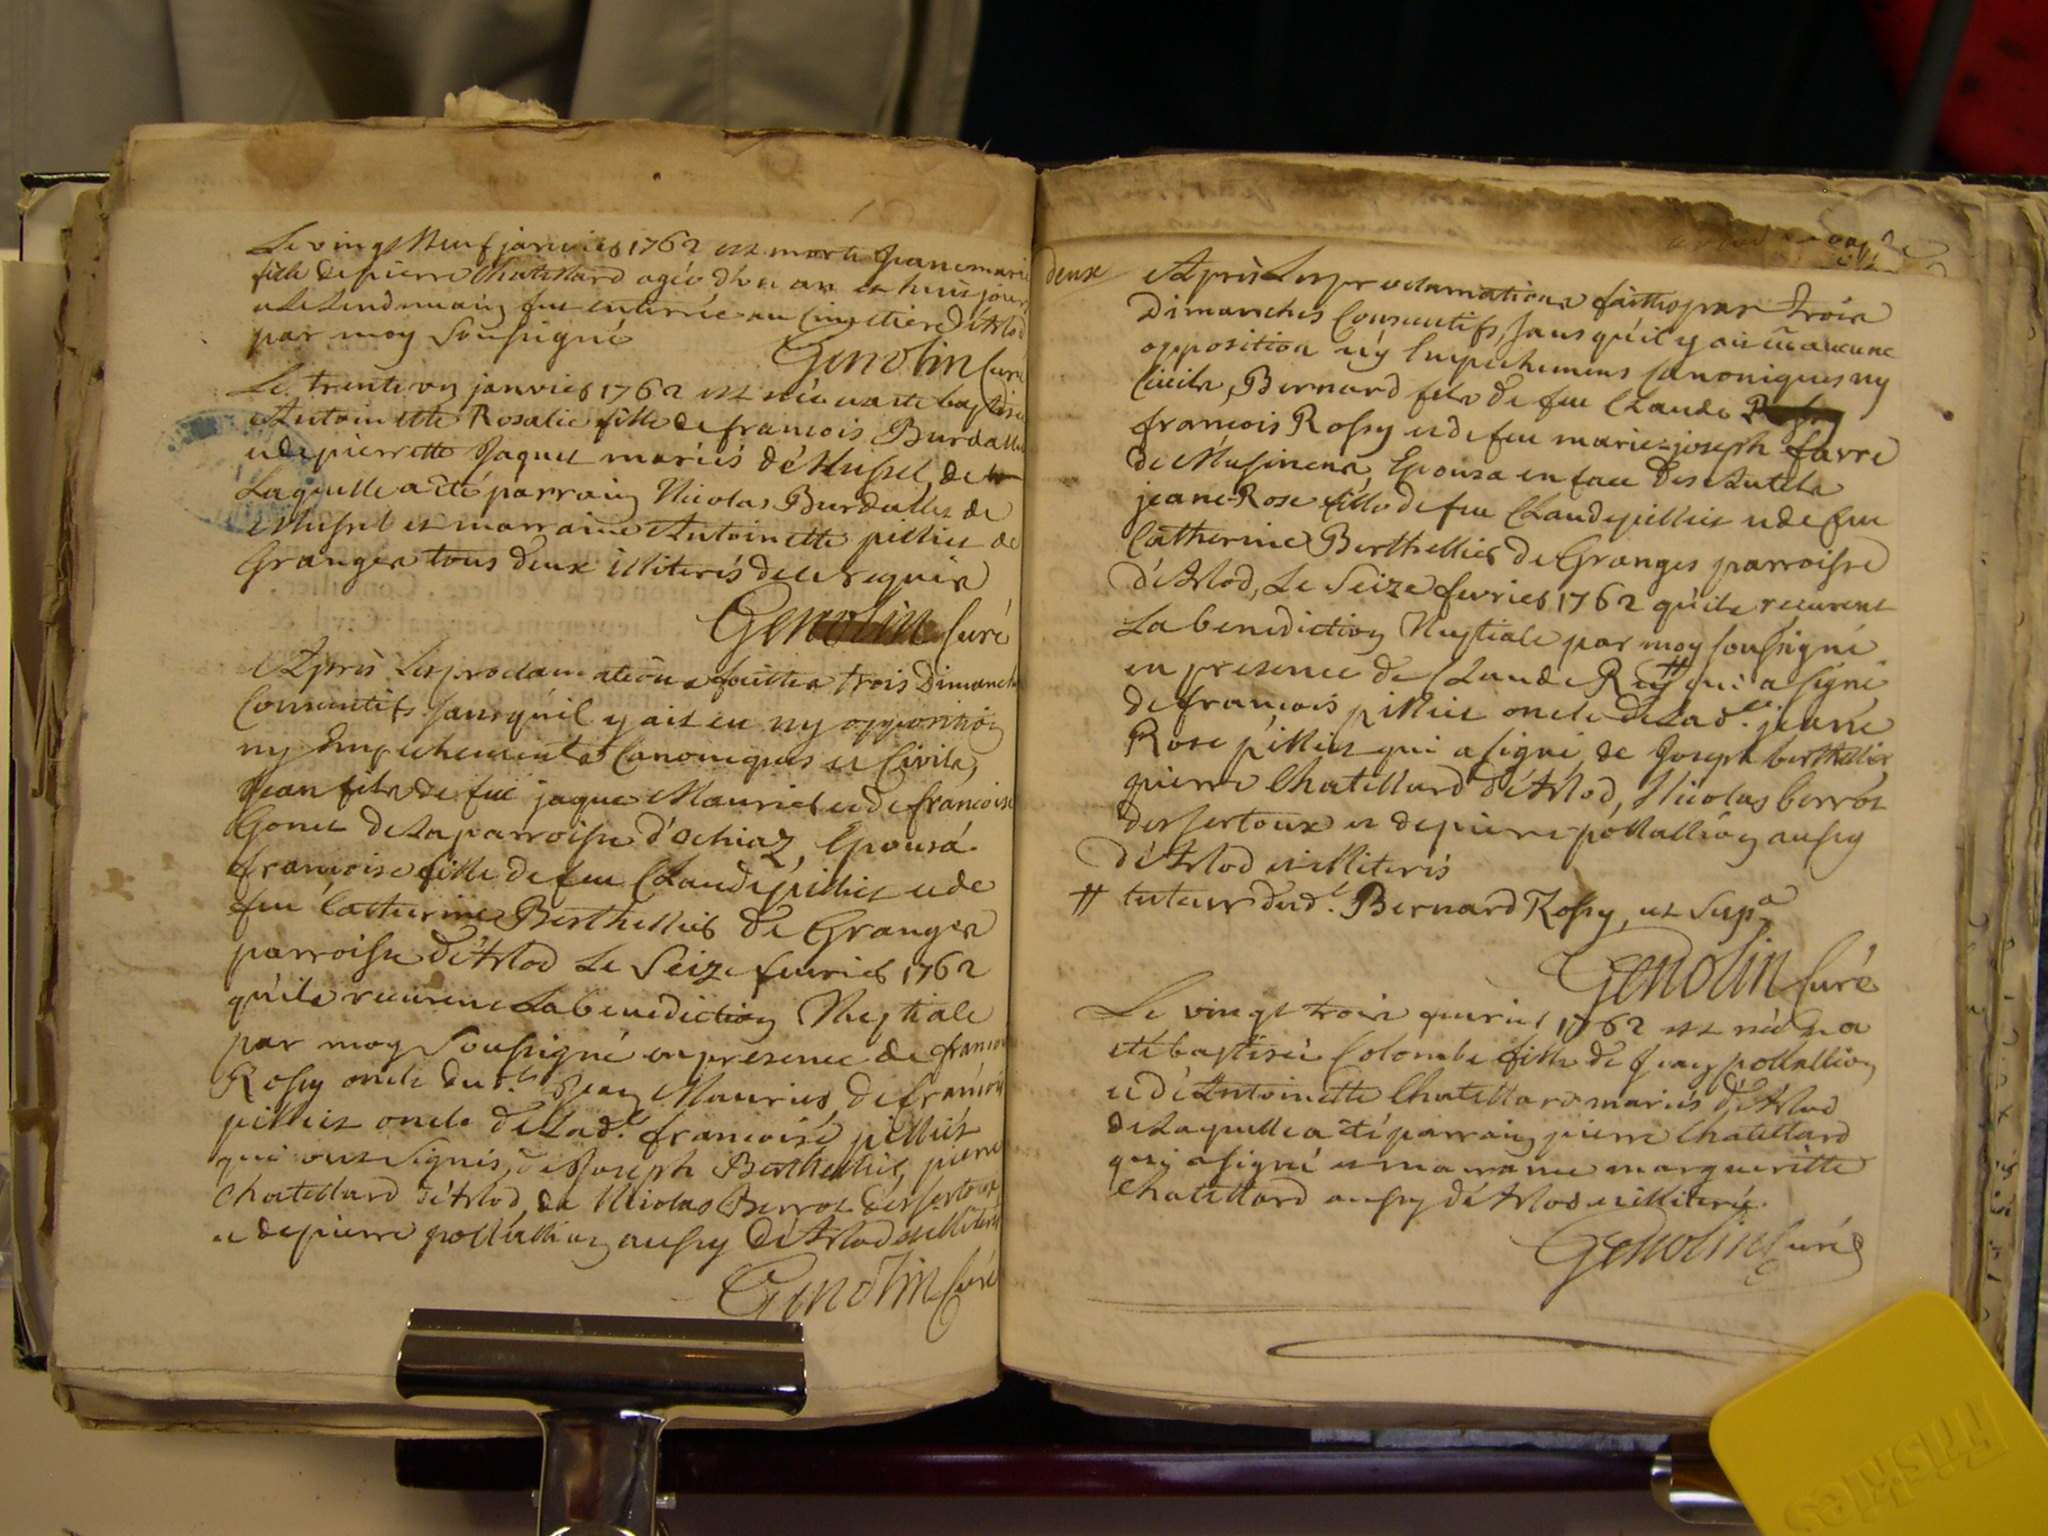 Le vingt Neuf janvier 1762 est morte Jeanemarie
fille de pierre Chatillard agée d'un an et huit jours
et Le Lendemain fut enterrée au Cimetiere d'Arlod
par moy Soussigné
Genolin Curé
Le trente un janvier 1762 est née et a ete baptisée
Antoinette Rosalie fille de francois Burdallet
et de pierrette Jaquet mariés de Mussel, de
Laquelle a été parrain Nicolas Burdallet de
Mussel et marraine Antoinette pilliet de
Granges tous deux illiterés de ce requis
Genolin Curé
Après Les proclamations faittes trois Dimanches
Consecutifs sans qu'il y ait eu ny opposition
ny Empechements Canoniques et Civils,
Jean fils de feu jaque Maurier et de francoise
Gonet de La parroisse d'ochiaz, Epousá
francoise fille de feu Claude pilliet et de
feu Catherine Berthellier de Granges
parroisse d'Arlod Le Seize fevrier 1762
qu'ils recurent La benediction Nuptiale
par moy Soussigné en presence de francois
Rossy oncle dud.t Jean Maurier, de francois
pilliet oncle de Lad.e francoise pilliet
qui ont signés, de Joseph Berthellier, pierre
Chatillard d'Arlod, de Nicolas Berrot des sertoux
et de pierre pollallion aussy d'Arlod illiterés
Genolin Curé
deux
Après Les proclamations faittes par trois
Dimanches Consecutifs, sans qu'il y ait eu aucune
opposition n'y Empechemens Canoniques ny
Civils, Bernard fils de feu Claude
francois Rossy et de feu marie-joseph favre
de Musinens Epousa en face des Autels
jeane-Rose fille de feu Claude pilliet et de feu
Catherine Berthellier de Granges parroisse
d'Arlod, Le Seize fevrier 1762 qu'ils recurent
La benediction Nuptiale par moy soussigné
en presence de Claude Rey # qui a signé
de francois pilliet oncle de Lad.e jeane
Rose pilliet qui a signé, de Joseph berthellier
pierre Chatillard d'Arlod, Nicolas berrot
des sertoux et de pierre pollallion aussy
d'Arlod illiterés
# tuteur dud.t Bernard Rossy, ut Sup.a
Genolin Curé
Le vingt trois fevrier 1762 est née et a
été baptisée Colombe fille de Jean pollallion
et d'Antoinette Chatillard mariés d'Arlod
de Laquelle a été parrain pierre Chatillard
qui a signé et maraine margueritte
Chatillard aussy d'Arlod illiterée.
Genolin Curé
Friskies